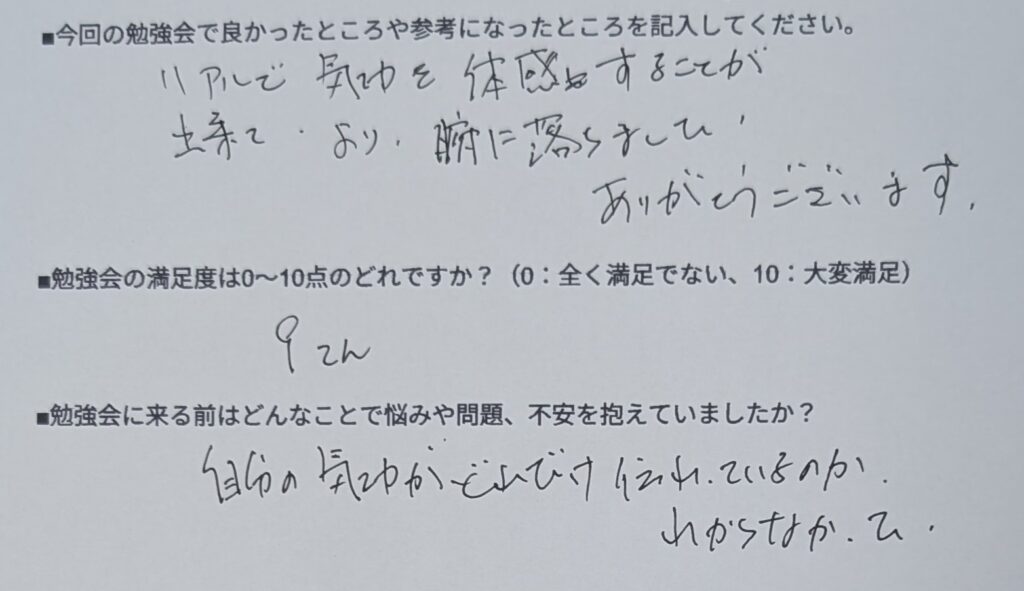 ■今回の勉強会で良かったところや参考になったところを記入してください。
リアルで 気功を 体感することが
出来て、より、腑に落ちました!
ありがとうございます。
■勉強会の満足度は0〜10点のどれですか?(0:全く満足でない、10:大変満足)
9てん
■勉強会に来る前はどんなことで悩みや問題、不安を抱えていましたか?
自分の気功がどれだけ伝わっているのか、
わからなかった。